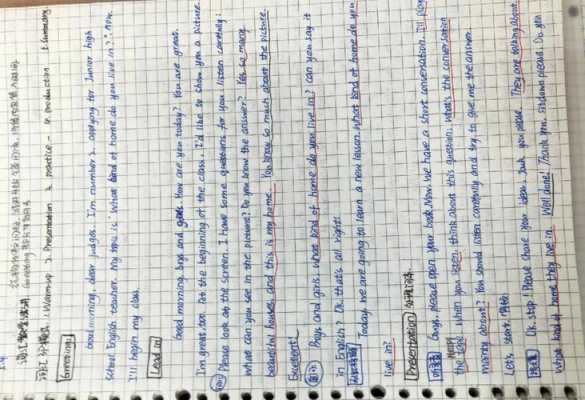 1. Warm-up 2. Presentation 3. practice 4. production 5. Summary
Greeting:
Good morning, dear judges. I'm number 2. applying for Junior high
school English teacher. My topic is What kind of home do you live in? now.
I'll begin my class.
Lead in
Good morning, boys and girls. How are you today? You are great.
I'm great, too. At the beginning of the class. I'd like to show you a picture.
Please look at the screen. I have some questions for you. listen carefully:
what can you see in the picture? Do you know the answer? Yes so many
beautiful houses, and this is my home. You know so much about the picture.
Excellent!
Boys and girls. What kind of home do you live in? Can you say it
in English? Ok. that's all right!
Today we are going to learn a new lesson. What kind of home do you
live in?
Presentation
Guys, please open your book. Now we have a short conversation. I'll play
the tape when you listen, think about this question. what's the conversation
mainly about? You should listen carefully and try to give me the answer.
Let's start.
Ok. Stop! Please share your idea. Jack you please. They are talking about
what kind of home they live in. Well done! Thank you. Sitdown please. Do you